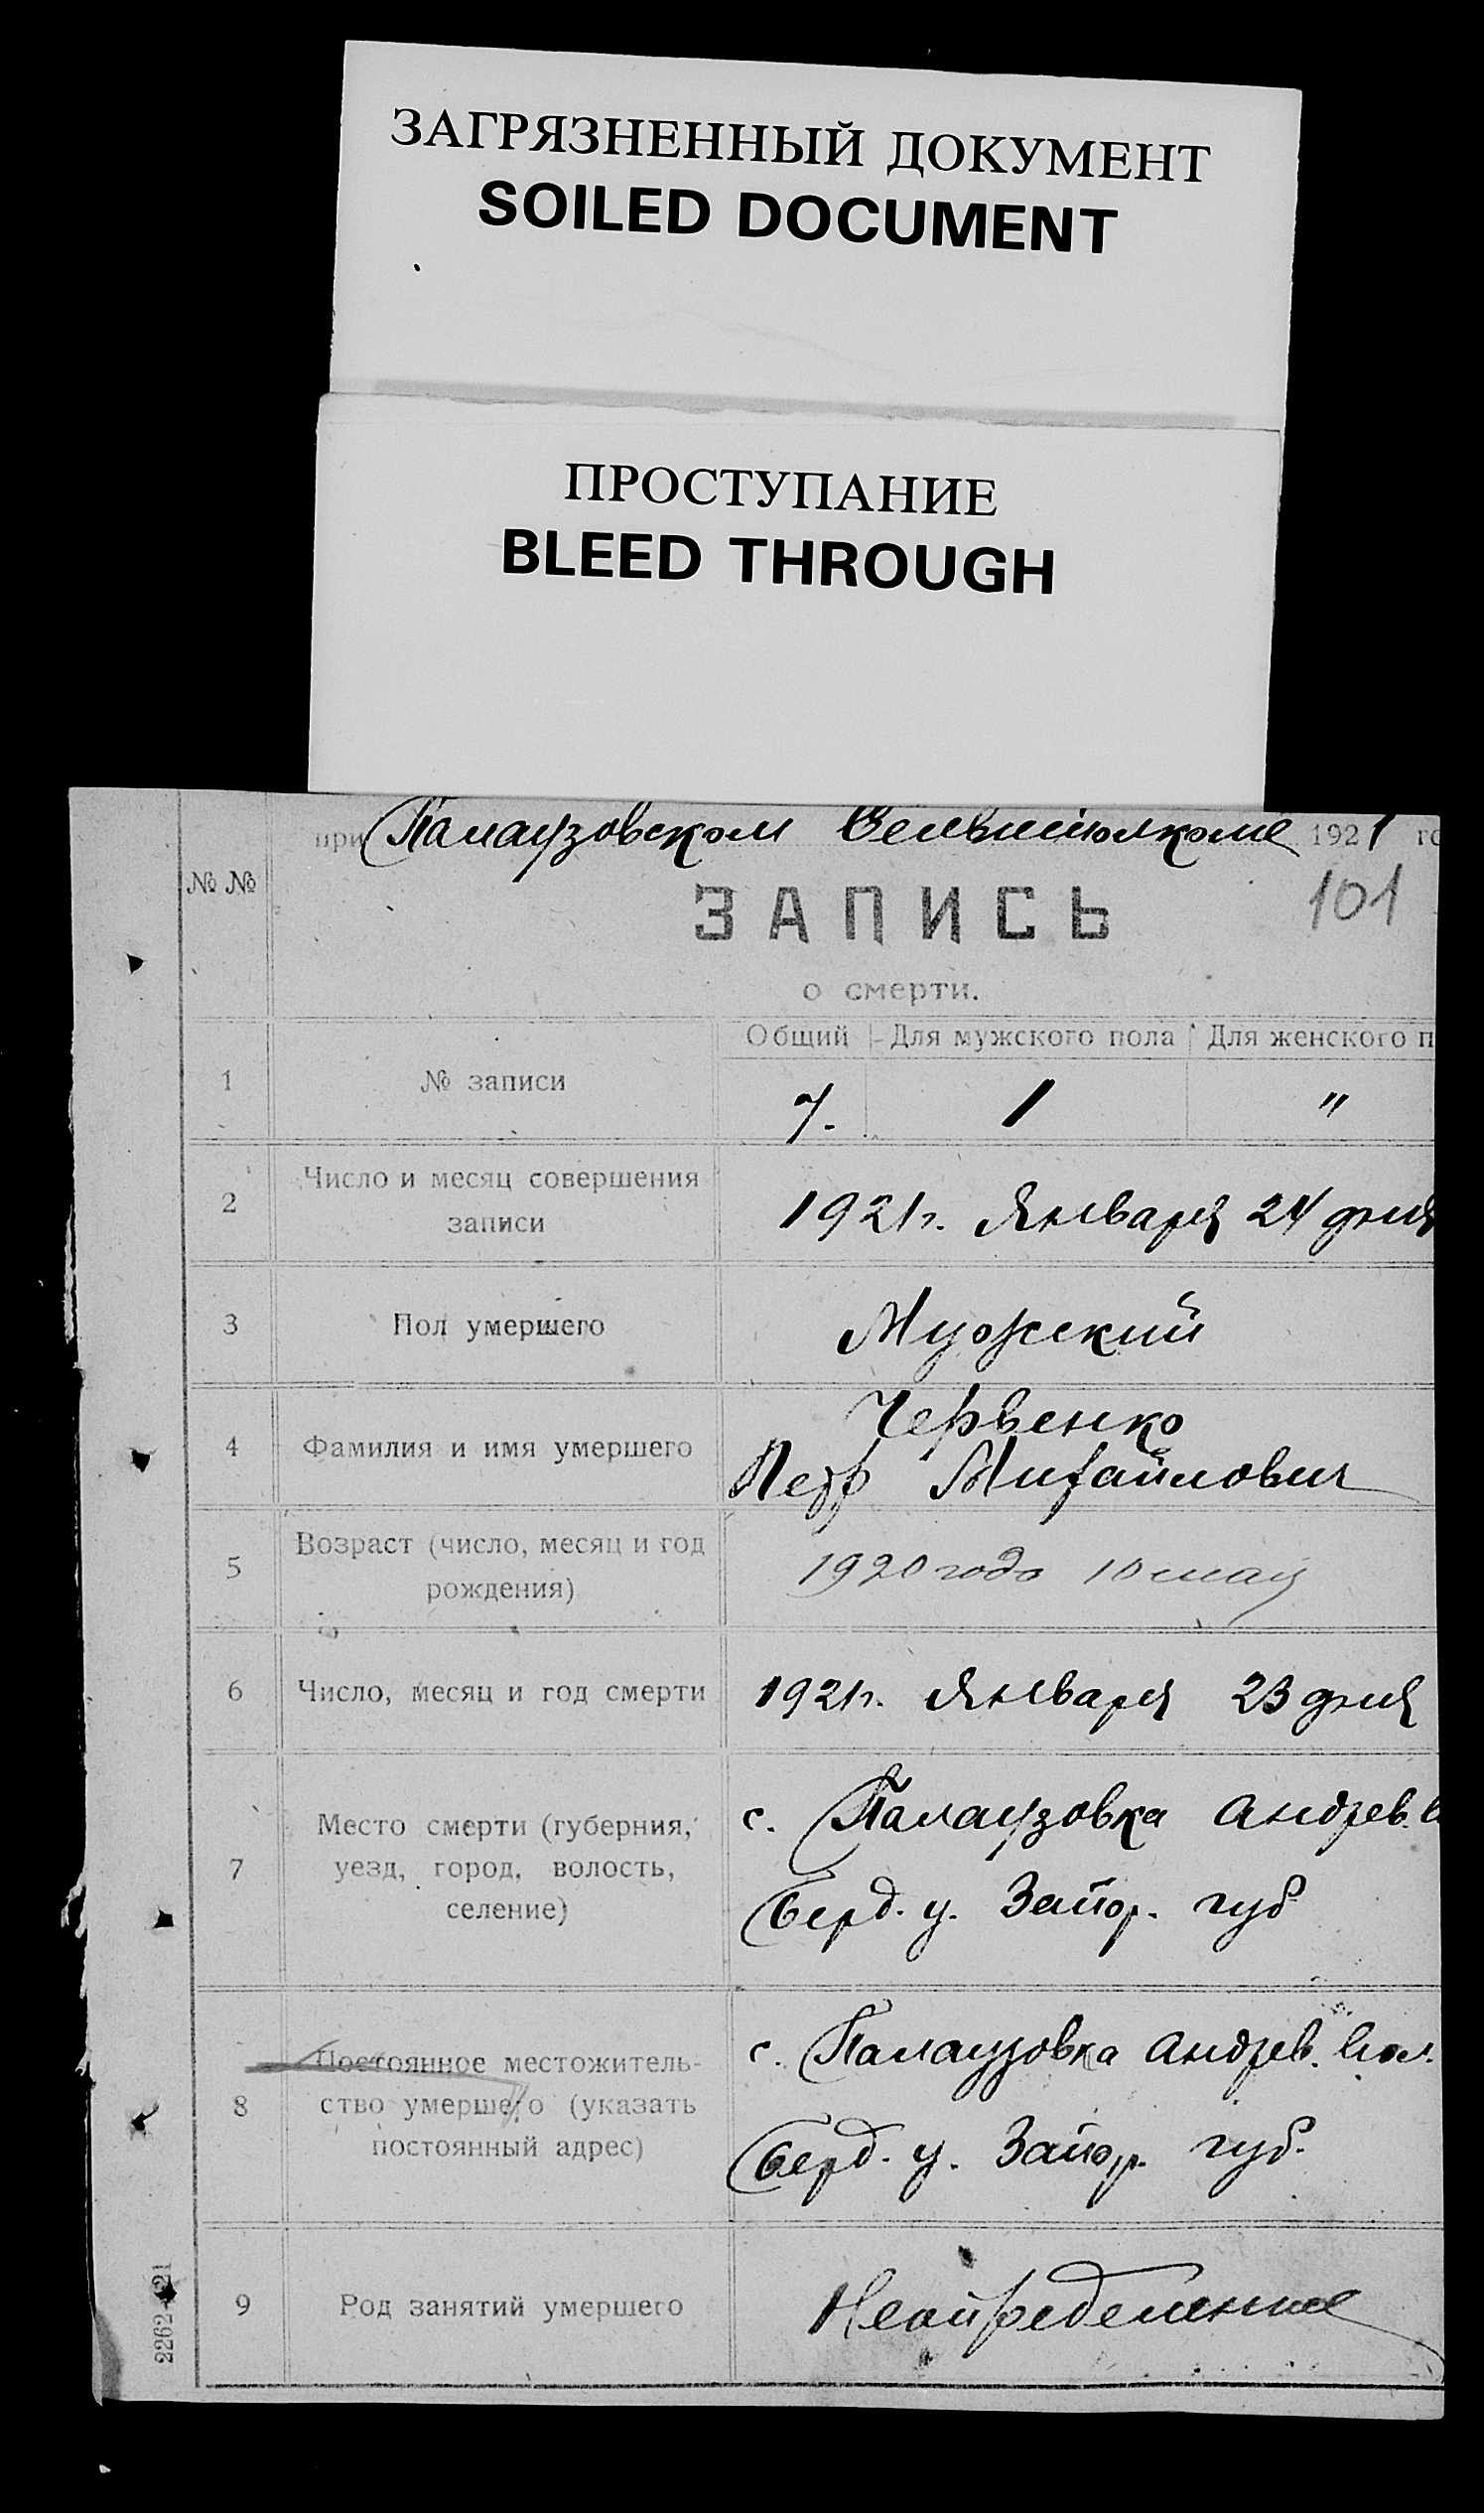 ЗАГРЯЗНЕННЫЙ ДОКУМЕНТ
SOILED DOCUMENT
ПРОСТУПАНИЕ
BLEED THROUGH
при Палаузовском 1921 го
№ №
101
ЗАПИСЬ
о смерти.
Общий Для мужского пола Для женского п
1 № записи 7. 1 "
2 Число и месяц совершения
записи
1921г. Января 24 дня
3 Пол умершего Мужский
4 Фамилия и имя умершего
Червенко
Петр Михайлович
5 Возраст (число, месяц и год
рождения)
1920 года 10 мая
6 Число, месяц и год смерти 1921г. Января 23 дня
7 Место смерти (губерния,
уезд, город, волость,
селение)
с. Палаузовка Андрев. в
Берд. у. Запор. губ
8 Постоянное местожитель-
ство умершего (указать
постоянный адрес)
с. Палаузовка Андрев. вол.
Берд. у. Запор. губ.
9 Род занятий умершего